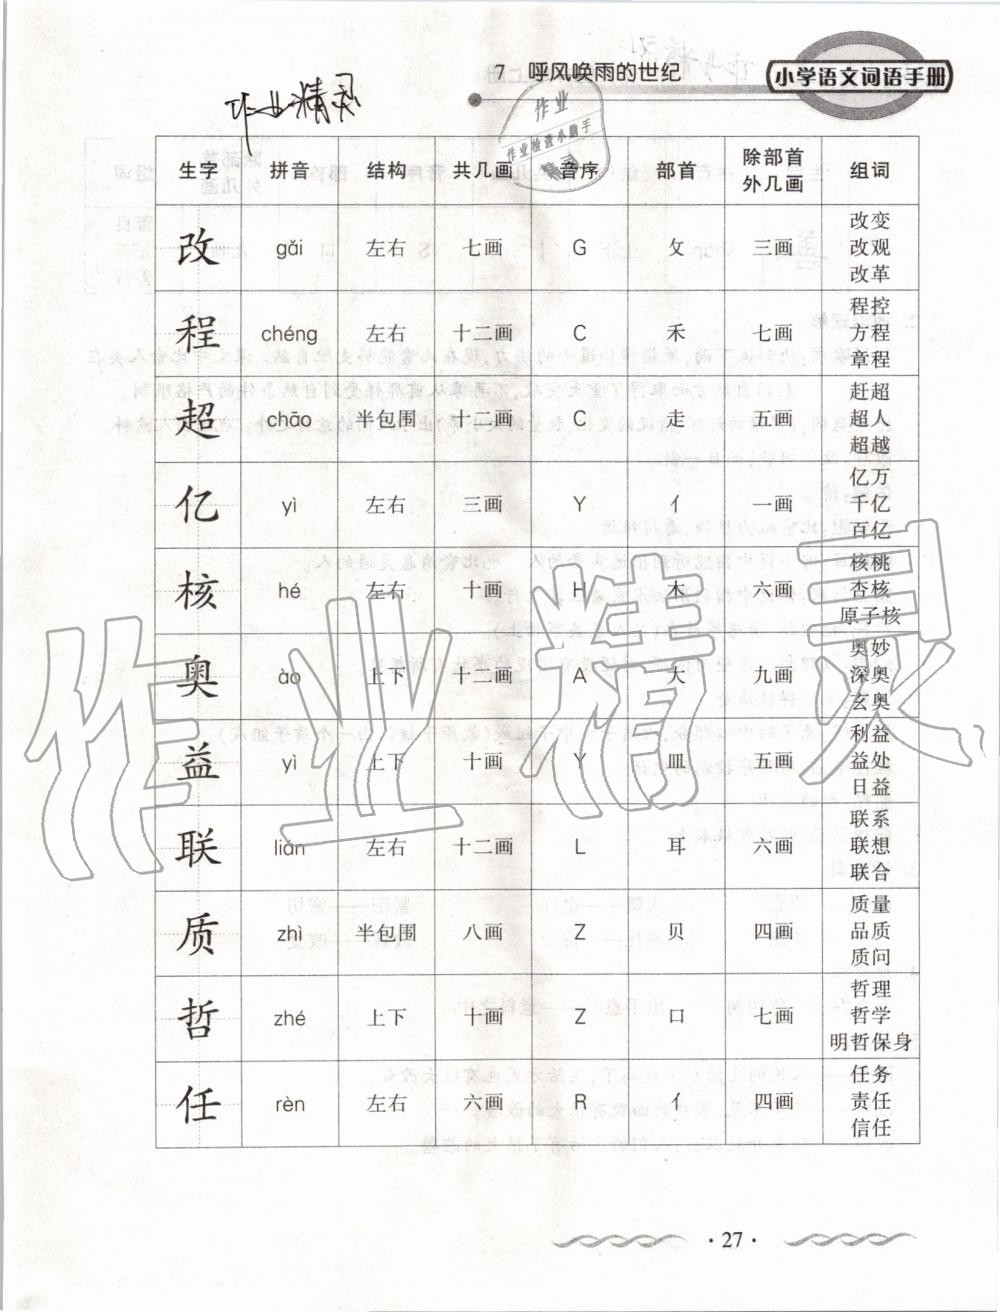 7 呼风唤雨的世纪
小学语文词语手册
作业精灵
作业
作业检查小助手
生字 拼音 结构 共几画 音序 部首 除部首外几画 组词
改 gǎi 左右 七画 G 攵 三画 改变 改观 改革
程 chéng 左右 十二画 C 禾 七画 程控 方程 章程
超 chāo 半包围 十二画 C 走 五画 赶超 超人 超越
亿 yì 左右 三画 Y 亻 一画 亿万 千亿 百亿
核 hé 左右 十画 H 木 六画 核桃 杏核 原子核
奥 ào 上下 十二画 A 大 九画 奥妙 深奥 玄奥
益 yì 上下 十画 Y 皿 五画 利益 益处 日益
联 lián 左右 十二画 L 耳 六画 联系 联想 联合
质 zhì 半包围 八画 Z 贝 四画 质量 品质 质问
哲 zhé 上下 十画 Z 口 七画 哲理 哲学 明哲保身
任 rèn 左右 六画 R 亻 四画 任务 责任 信任
作业精灵
·27·